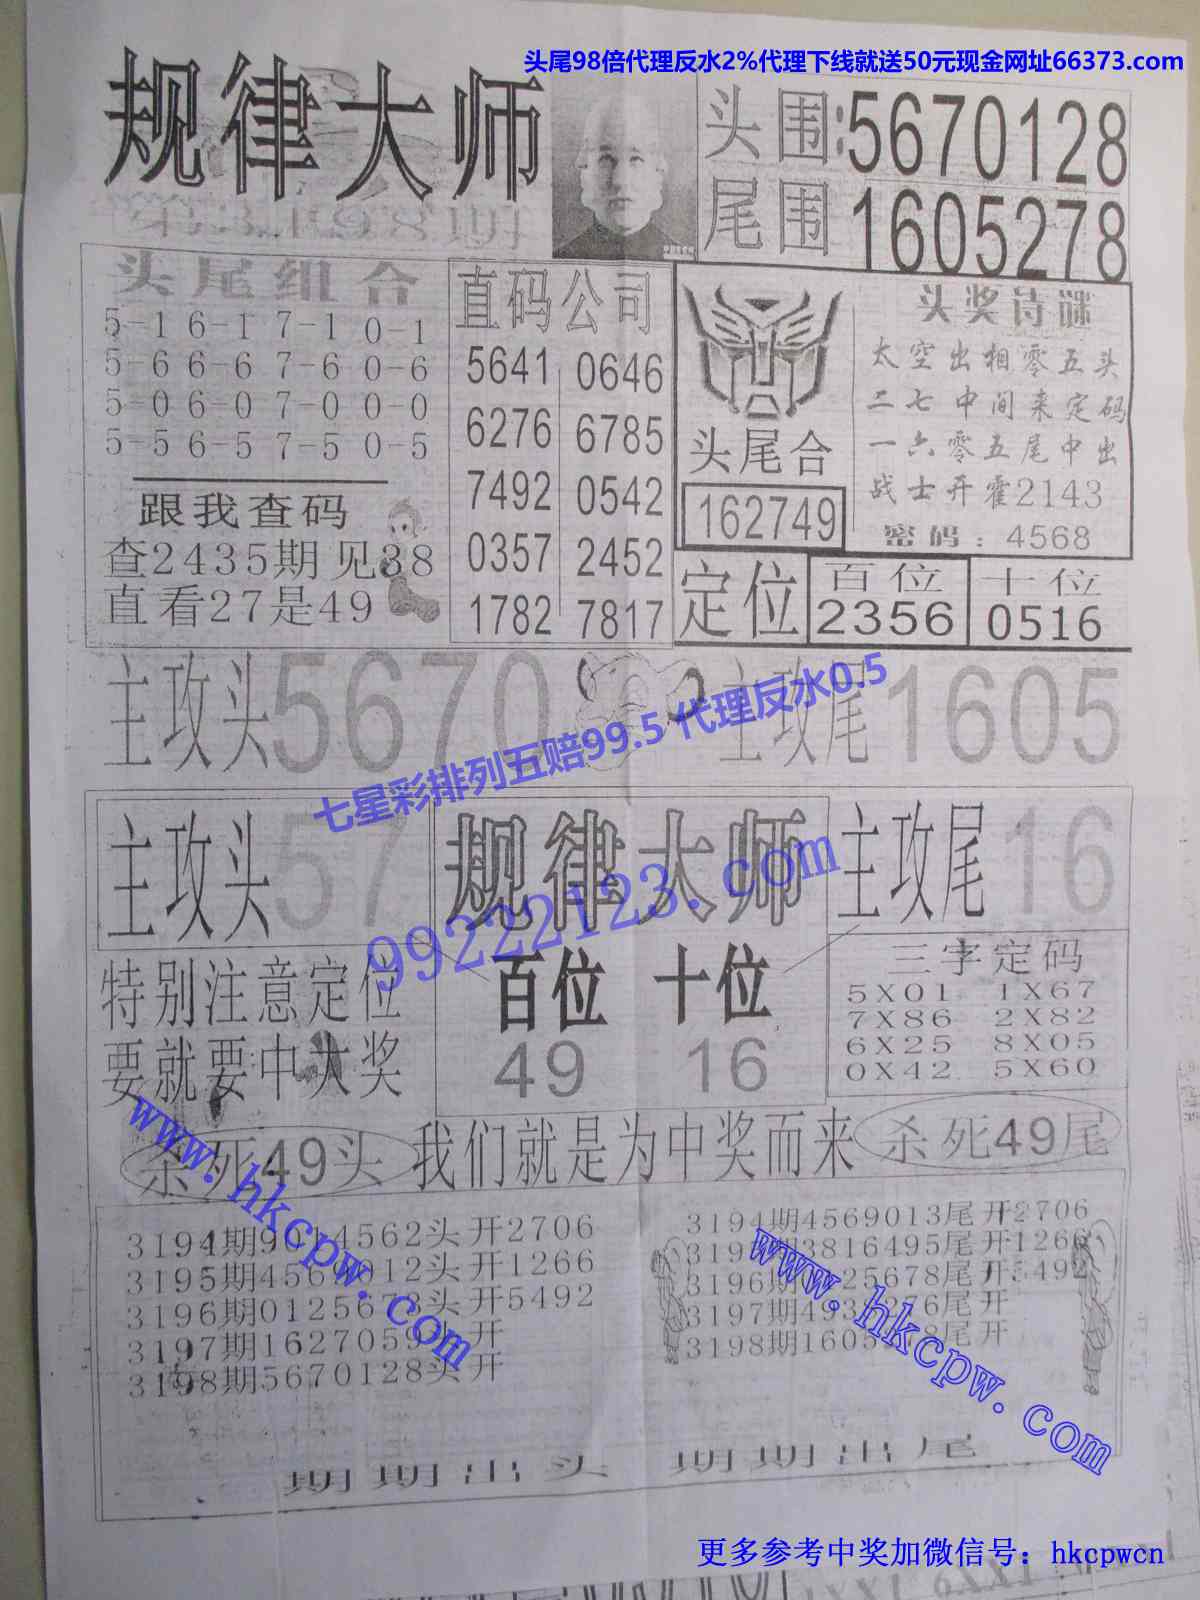 头尾98倍代理反水2%代理下线就送50元现金网址66373.com
规律大师
头围:5670128
尾围 1605278
头尾组合
5-1 6-1 7-1 0-1
5-6 6-6 7-6 0-6
5-0 6-0 7-0 0-0
5-5 6-5 7-5 0-5
跟我查码
查2435期见38
直看27是49
直码公司
5641 0646
6276 6785
7492 0542
0357 2452
1782 7817
头尾合
162749
头奖诗谜
太空出相零五头
二七中间来定码
一六零五尾中出
战士开霍2143
密码：4568
定位
百位
2356
十位
0516
主攻头5670
主攻尾1605
七星彩排列五赔99.5 代理反水0.5
99222123.com
主攻头57
规律大师
主攻尾16
特别注意定位
要就要中大奖
百位 十位
49 16
三字定码
5X01 1X67
7X86 2X82
6X25 8X05
0X42 5X60
杀死49头
我们就是为中奖而来
杀死49尾
3194期9014562头开2706
3195期4569012头开1266
3196期0125678头开5492
3197期1627059头开
3198期5670128头开
3194期4569013尾开2706
3195期3816495尾开1266
25678尾开5492
276尾开
尾开
www.hkcpw.com
www.hkcpw.com
期期出头 期期出尾
更多参考中奖加微信号：hkcpwcn